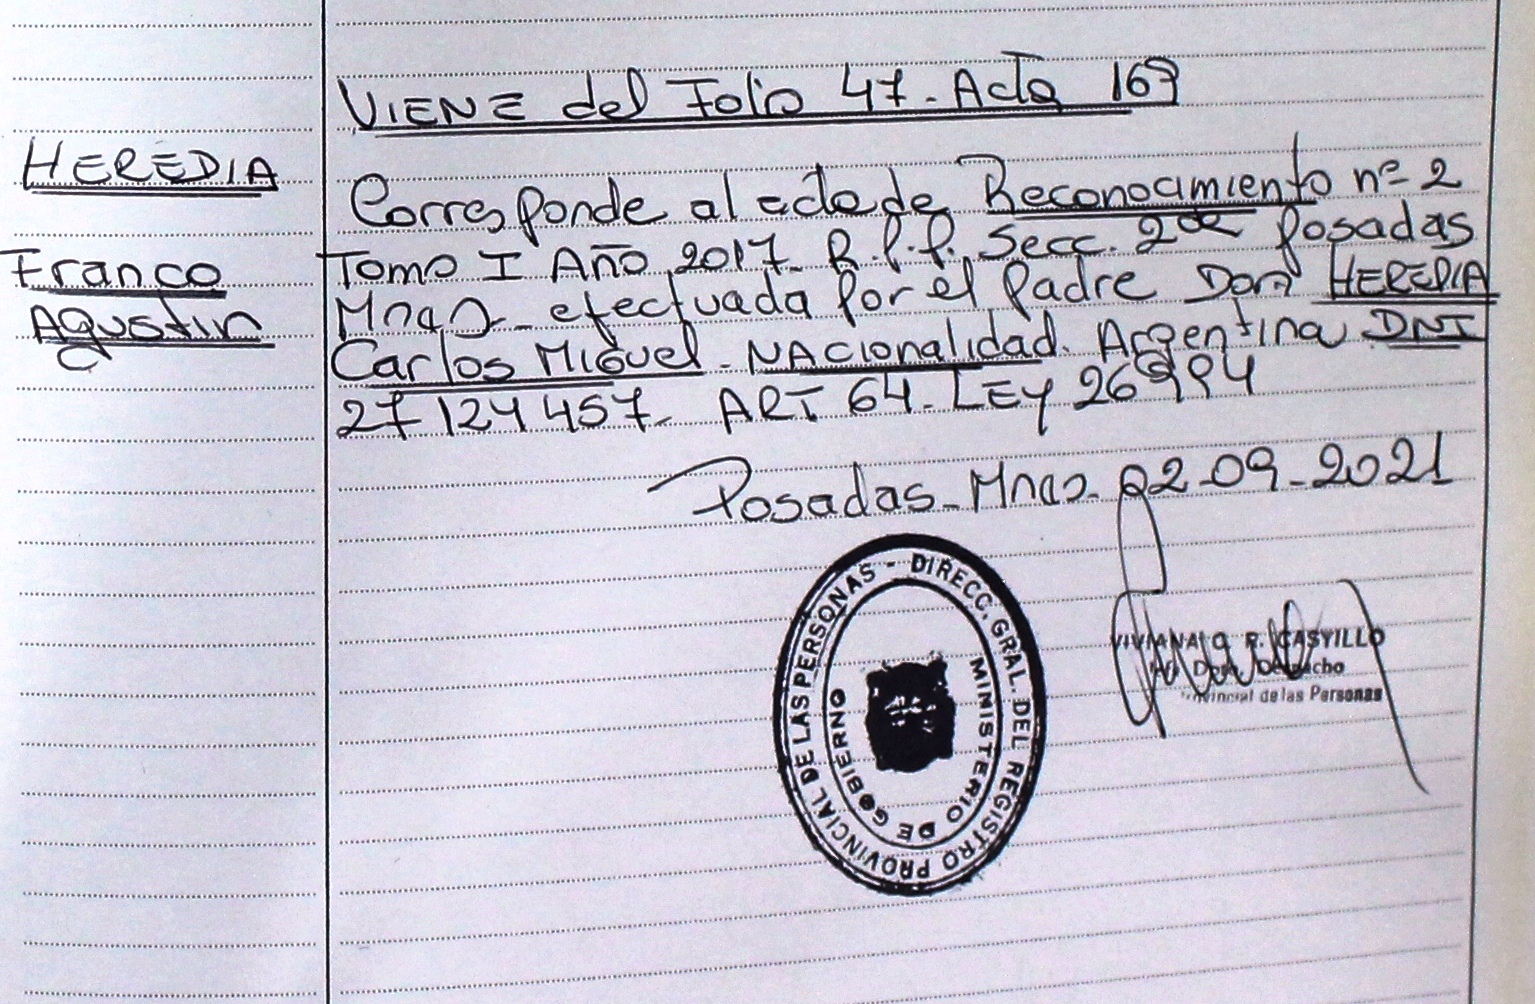 VIENE del Folio 47 - Acta 169
HEREDIA
Franco
Agustin
Corresponde al acta de Reconocimiento nº 2
Tomo I Año 2017. R.P.P. Secc. 2da Posadas
Mnas - efectuada por el Padre Don HEREDIA
Carlos Miguel - NACionalidad. Argentina DNI
27 124 457. ART 64 - LEY 26994
Posadas - Mnas - 02-09-2021
DIRECC. GRAL. DEL REGISTRO PROVINCIAL DE LAS PERSONAS -
MINISTERIO DE GOBIERNO
VIVIANA R. CASTILLO
Despacho
Provincial de las Personas